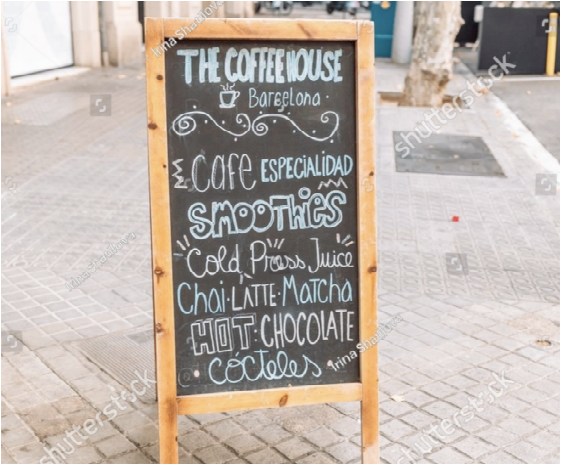 THE COFFEE HOUSE
Barcelona
CAFE ESPECIALIDAD
SMOOTHIES
Cold Press Juice
Chai · LATTE · Matcha
HOT · CHOCOLATE
CÓCTELES
Irina Shatilova
shutterstock
shutterstock
shutterstock
shutterstock
Irina Shatilova